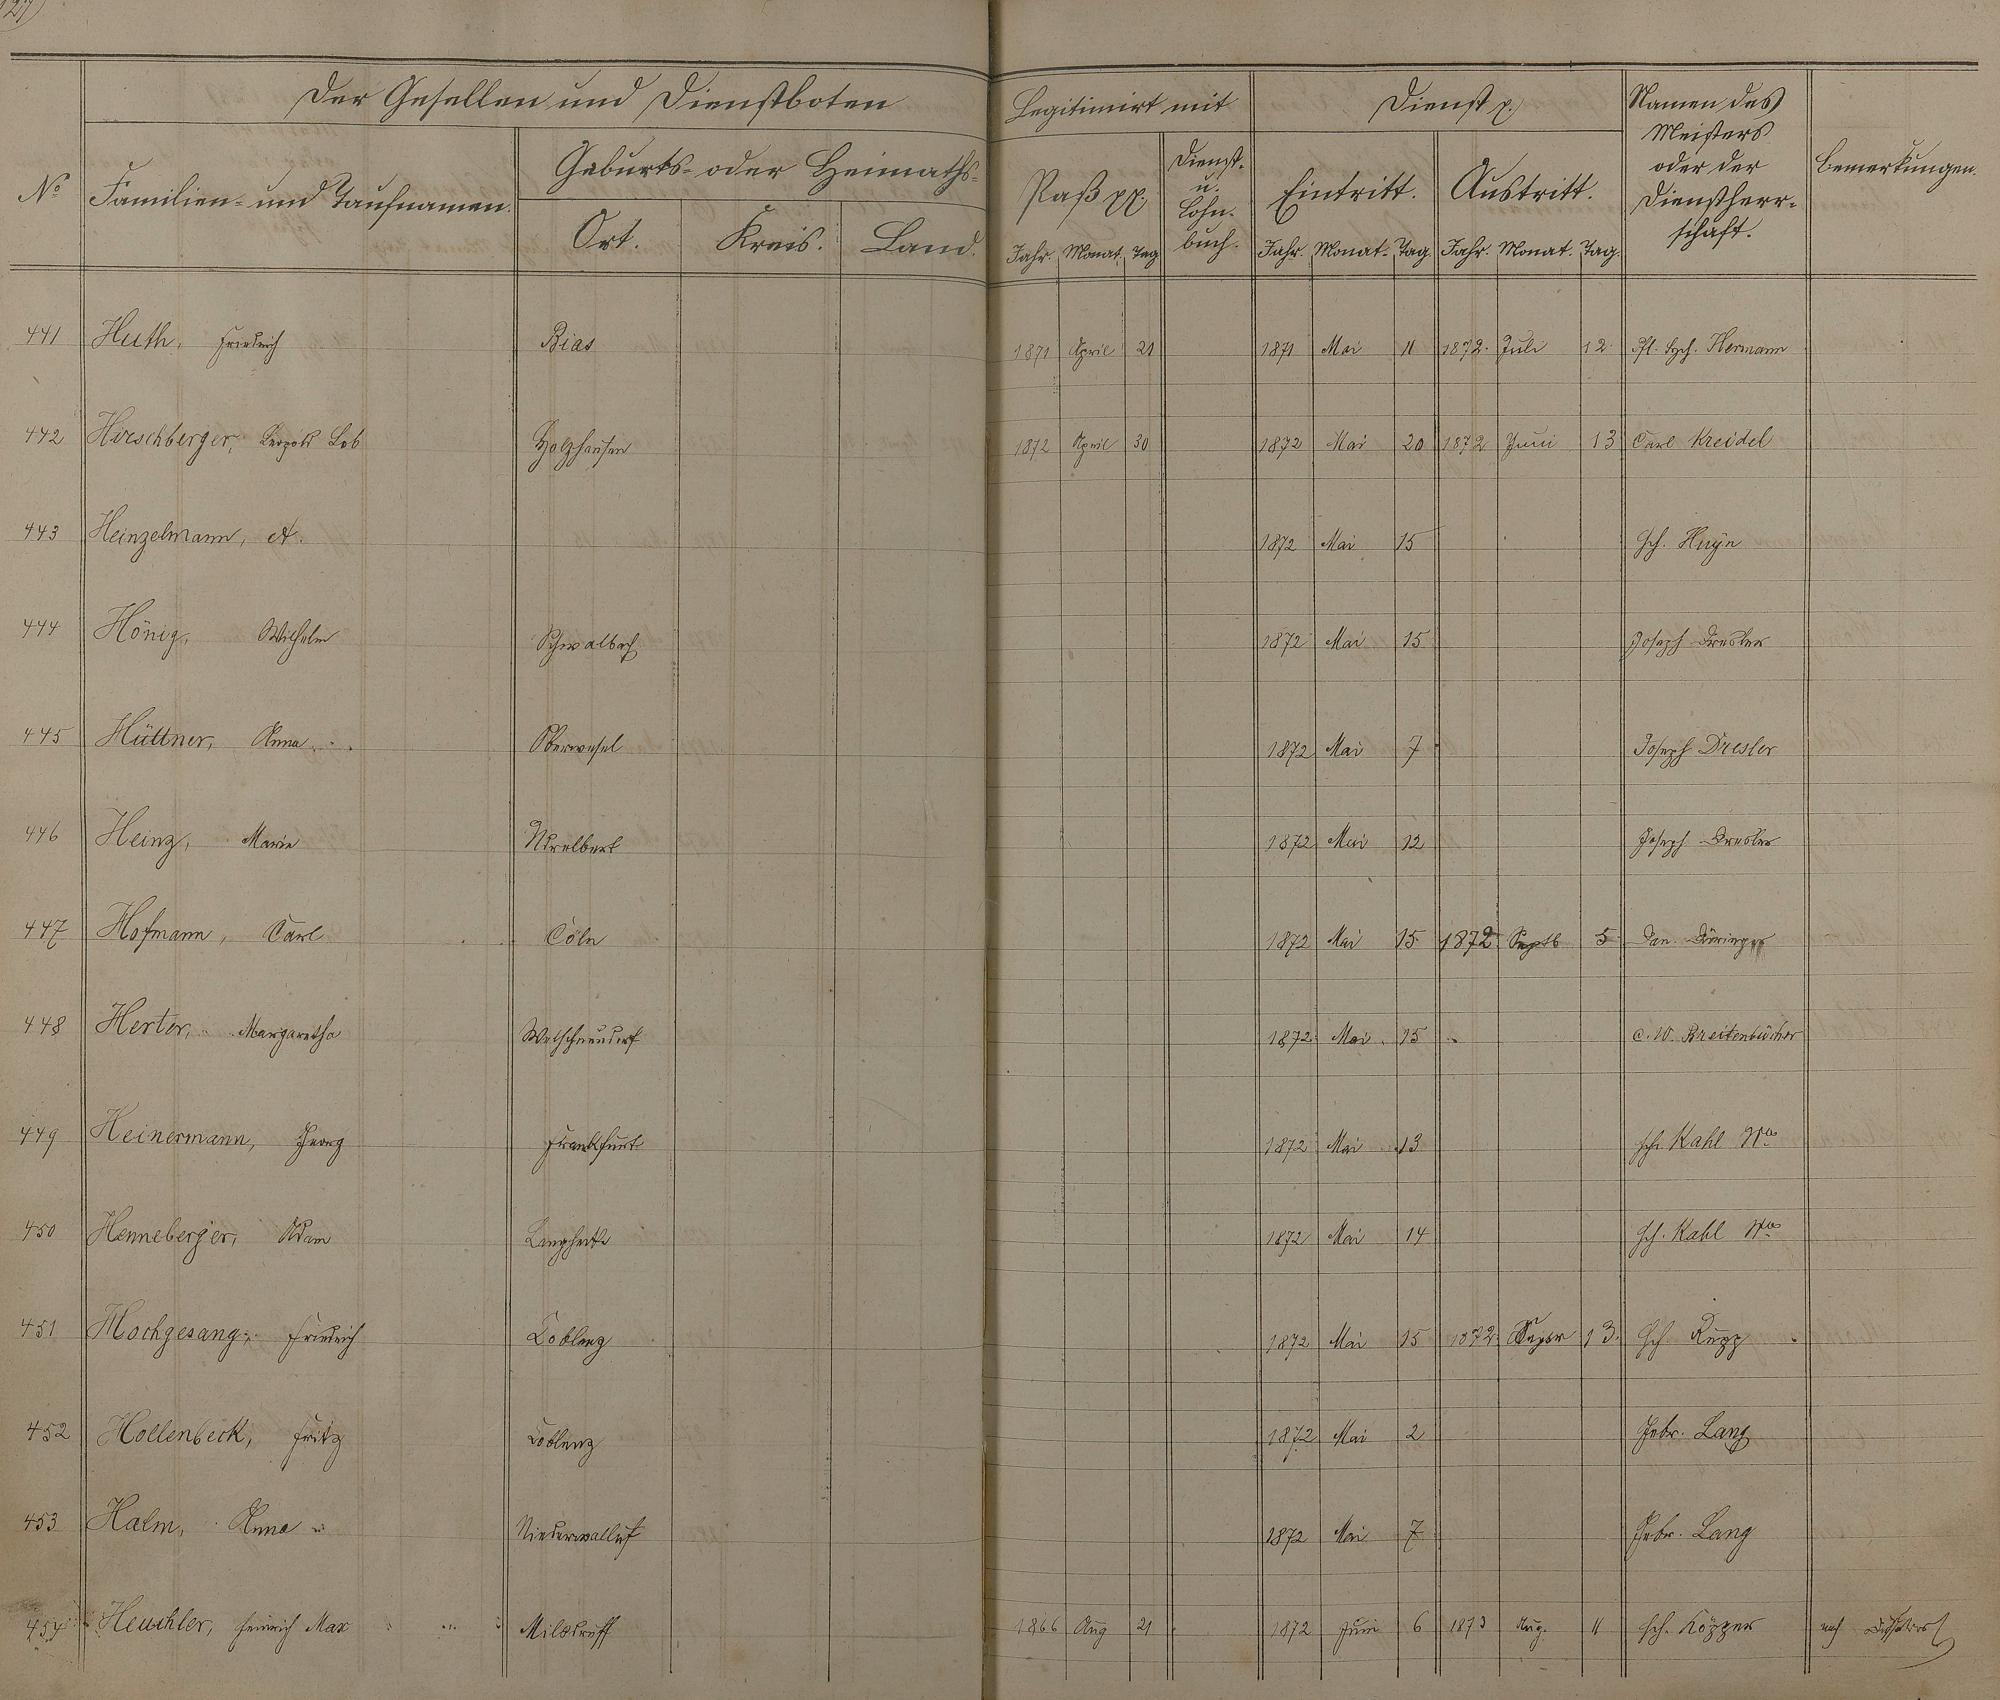 Der Gesellen und Dienstboten Legitimirt mit Dienst p.
No Familien- und Taufnamen. Geburts- oder Heimaths- Paß pp. Dienst- u. Lohn- buch. Eintritt. Austritt. Namen des Meisters oder der Dienstherr- schaft. Bemerkungen.
Ort. Kreis. Land. Jahr. Monat. Tag Jahr. Monat. Tag. Jahr. Monat. Tag.
441 Huth, Friedrich Bias 1871 April 21 1871 Mai 11 1872. Juli 12. Hermann
442 Hirschberger, Leopold Lob Holzhausen 1872 April 30 1872 Mai 20 1872 Juni 13 Carl Kreidel
443 Heinzelmann, A. 1872 Mai 15 Hch. Huÿn
444 Hönig, Wilhelm Schwalbach 1872 Mai 15 Joseph Dresler
445 Hüttner, Anna Oberwesel 1872 Mai 7 Joseph Dresler
446 Heinz, Marie 1872 Mai 12 Joseph Dresler
447 Hofmann, Carl Cöln 1872 Mai 15 1872 Septb 5
448 Herter, Margaretha Welschneudorf 1872 Mai 15 C. W. Breitenbücher
449 Heinermann, Georg Frankfurt 1872 Mai 13 Hch. Kahl Wa
450 Henneberger, Adam 1872 Mai 14 Hch. Kahl Wa
451 Hochgesang, Friedrich Coblenz 1872 Mai 15 1872 Septbr 13. Hch. Rupp
452 Hollenbeck, Fritz Coblenz 1872 Mai 2 Gebr. Lang
453 Halm, Anna Niederwalluf 1872 Mai 7 Gebr. Lang
454 Heuchler, Heinrich Max Milsdruff 1866 Aug 21 1872 Juni 6 1873 Aug. 11 Hch. Köpper nach